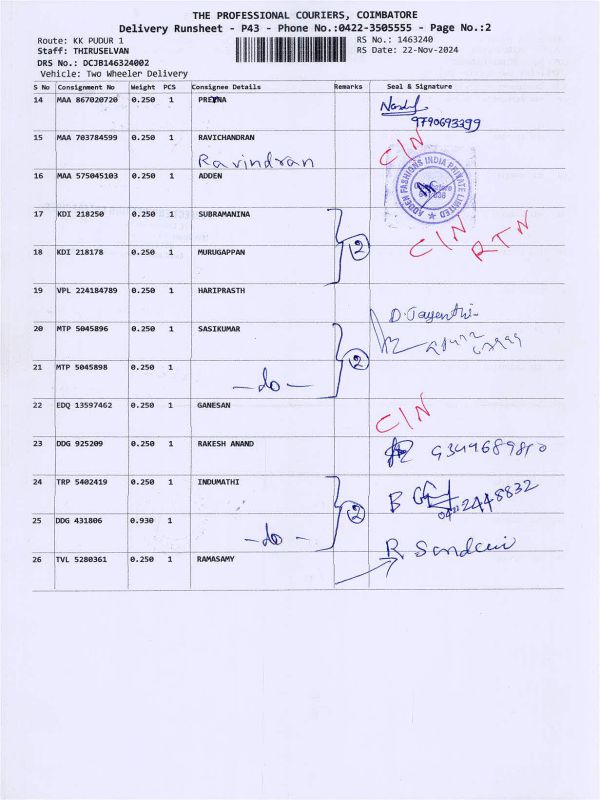 THE PROFESSIONAL COURIERS, COIMBATORE
Delivery Runsheet - P43 - Phone No.:0422-3505555 - Page No.:2
Route: KK PUDUR 1
RS No.: 1463240
Staff: THIRUSELVAN
RS Date: 22-Nov-2024
DRS No.: DCJB146324002
Vehicle: Two Wheeler Delivery
S No Consignment No Weight PCS Consignee Details Remarks Seal & Signature
14 MAA 867020720 0.250 1
9790693399
15 MAA 703784599 0.250 1 RAVICHANDRAN C/N
Ravindran
16 MAA 575045103 0.250 1 ADDEN
ADDEN FASHIONS INDIA PRIVATE LIMITED
17 KDI 218250 0.250 1 SUBRAMANINA C/N RTN
2
18 KDI 218178 0.250 1 MURUGAPPAN
19 VPL 224184789 0.250 1 HARIPRASTH
D. Jayenthi
20 MTP 5045896 0.250 1 SASIKUMAR
2
21 MTP 5045898 0.250 1
-do-
22 EDQ 13597462 0.250 1 GANESAN C/N
23 DDG 925209 0.250 1 RAKESH ANAND
24 TRP 5402419 0.250 1 INDUMATHI
2
25 DDG 431806 0.930 1
-do-
26 TVL 5280361 0.250 1 RAMASAMY